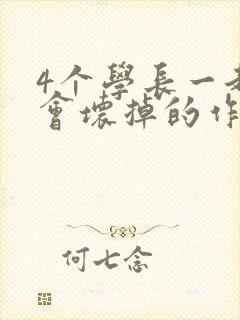 4个學長一起
會壞掉的作
何七念